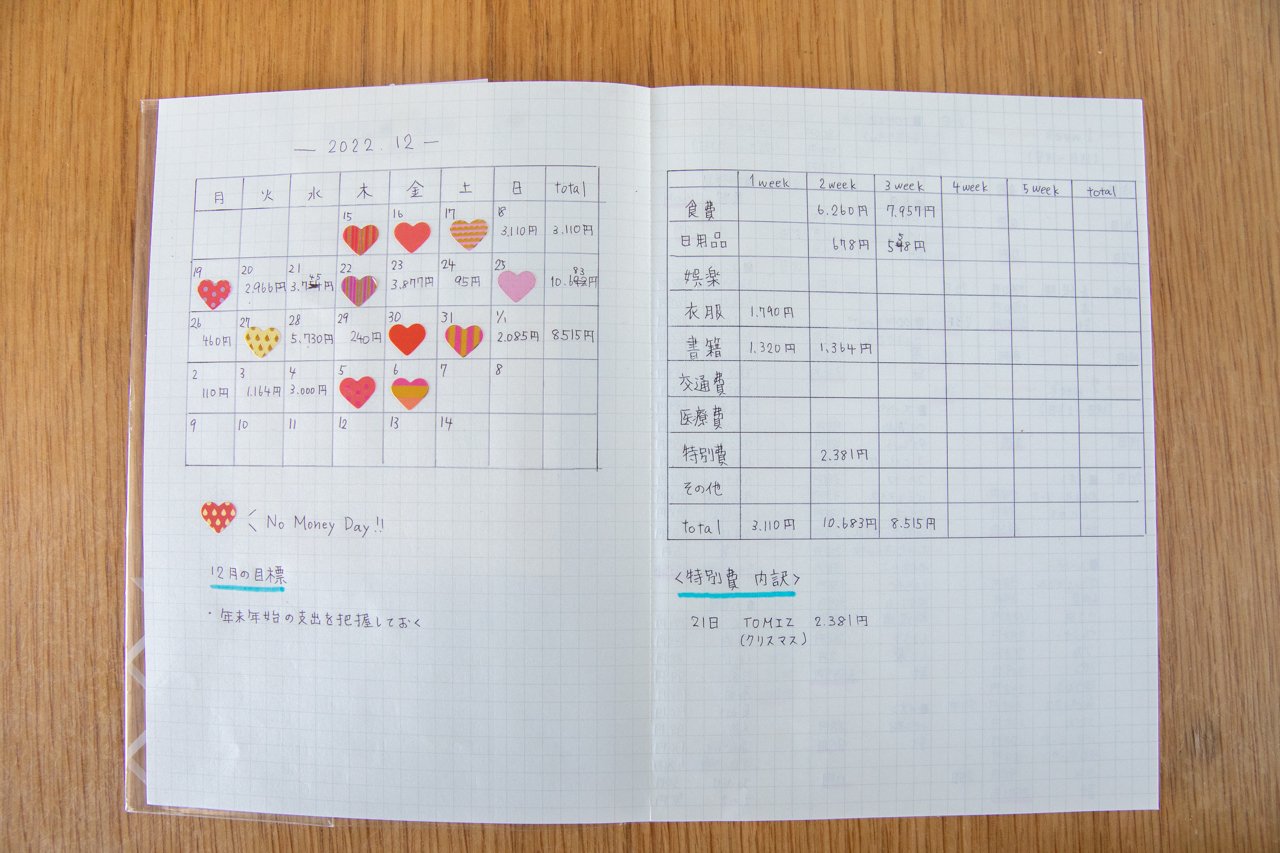 — 2022.12 —
月 火 水 木 金 土 日 total
15 16 17 18
3,110円 3,110円
19 20 21 22 23 24 25
2.966円 3.745円 3.877円 95円 10.683円
26 27 28 29 30 31 1/1
460円 5.730円 240円 2.085円 8515円
2 3 4 5 6 7 8
110円 1.164円 3.000円
9 10 11 12 13 14
No Money Day!!
12月の目標
・年末年始の支出を把握しておく
1week 2week 3week 4week 5week total
食費 6.260円 7.957円
日用品 678円 558円
娯楽
衣服 1.790円
書籍 1.320円 1,364円
交通費
医療費
特別費 2.381円
その他
total 3.110円 10.683円 8.515円
<特別費 内訳>
21日 TOMIZ 2.381円
(クリスマス)